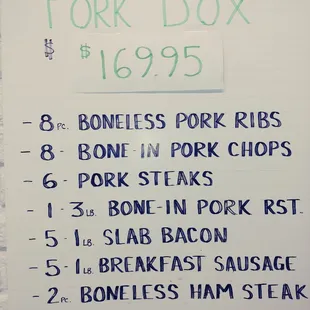 PORK BOX
$
$169.95
- 8 PC. BONELESS PORK RIBS
- 8 - BONE-IN PORK CHOPS
- 6 - PORK STEAKS
- 1 - 3 LB. BONE-IN PORK RST.
- 5 - 1 LB. SLAB BACON
- 5 - 1 LB. BREAKFAST SAUSAGE
- 2 PC. BONELESS HAM STEAK